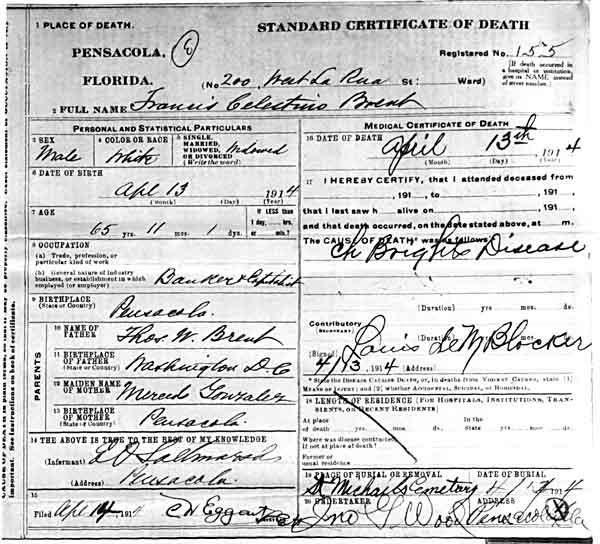 1 PLACE OF DEATH.
STANDARD CERTIFICATE OF DEATH
PENSACOLA,
6
Registered No. 155
FLORIDA.
(No 200 West La Rua St: Ward)
[If death occurred in
a hospital or institution,
give its NAME instead
of street number.]
2 FULL NAME Francis Celestino Brent
PERSONAL AND STATISTICAL PARTICULARS
3 SEX
Male
4 COLOR OR RACE
White
5 SINGLE,
MARRIED,
WIDOWED,
OR DIVORCED
(Write the word)
Widowed
6 DATE OF BIRTH
Apl 13 1914
(Month) (Day) (Year)
7 AGE
65 yrs. 11 mos. 1 dys.
If LESS than
1 day, hrs.
or min.?
8 OCCUPATION
(a) Trade, profession, or
particular kind of work
(b) General nature of industry
business, or establishment in which
employed (or employer)
Banker & Capitalist
9 BIRTHPLACE
(State or Country)
Pensacola.
PARENTS
10 NAME OF
FATHER
Thos. W. Brent
11 BIRTHPLACE
OF FATHER
(State or Country)
Washington D.C
12 MAIDEN NAME
OF MOTHER
Merced Gonzalez
13 BIRTHPLACE
OF MOTHER
(State or Country)
Pensacola.
14 THE ABOVE IS TRUE TO THE BEST OF MY KNOWLEDGE
(Informant)
(Address) Pensacola
15
Filed Apl 14, 1914 C H Eggart
MEDICAL CERTIFICATE OF DEATH
16 DATE OF DEATH
April 13th 1914
(Month) (Day) (Year)
17 I HEREBY CERTIFY, that I attended deceased from
, 191 , to , 191 ,
that I last saw h alive on , 191 ,
and that death occurred, on the date stated above, at m.
The CAUSE OF DEATH was as follows:
Ch Brights Disease
(Duration) yrs mos. ds.
Contributory
(SECONDARY)
(Duration) yrs mos. ds.
(Signed) Louis de M Blocker
4/13, 1914 (Address)
* State the Disease Causing Death, or, in deaths from Violent Causes, state (1)
Means of Injury; and (2) whether Accidental, Suicidal, or Homicidal.
18 LENGTH OF RESIDENCE (For Hospitals, Institutions, Transients, or Recent Residents)
At place
of death yrs. mos. ds.
In the
State yrs. mos. ds.
Where was disease contracted,
if not at place of death?
Former or
usual residence
19 PLACE OF BURIAL OR REMOVAL
St Michaels Cemetery
DATE OF BURIAL
1914
20 UNDERTAKER
ADDRESS
Pensacola Fla
important. See instructions on back of certificate.